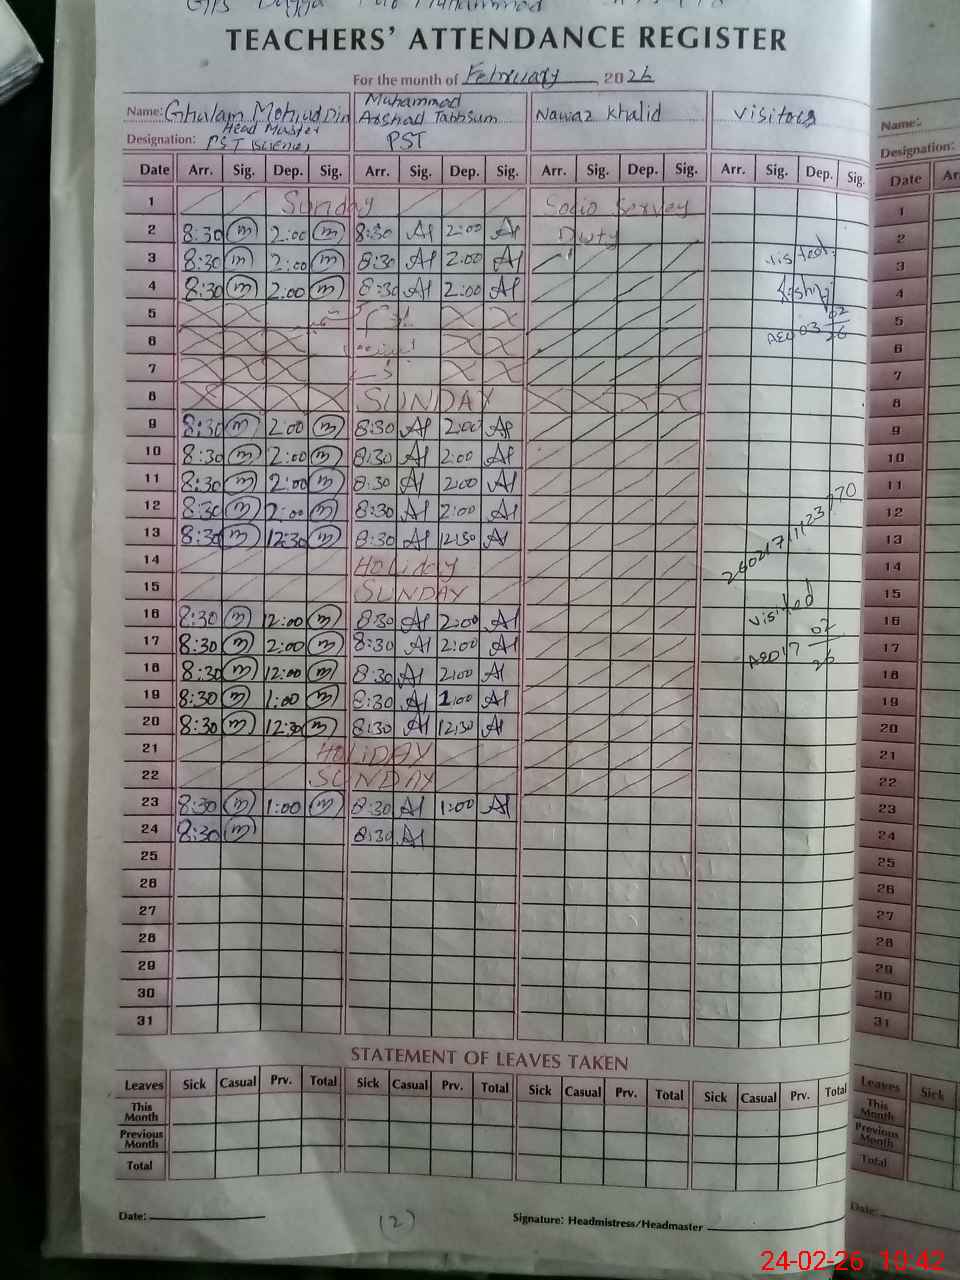 TEACHERS' ATTENDANCE REGISTER
For the month of February 2026
Name: Ghulam Mohiud Din Muhammad Arshad Tabbsum Nawaz Khalid Visitors
Designation: Head Master PST (Science) PST
Date Arr. Sig. Dep. Sig. Arr. Sig. Dep. Sig. Arr. Sig. Dep. Sig. Arr. Sig. Dep. Sig.
1 Sunday Socio Servey
2 8:30 m 2:00 m 8:30 At 2:00 At Duty
3 8:30 m 2:00 m 8:30 At 2:00 At visited
4 8:30 m 2:00 m 8:30 At 2:00 At
5
6 AEO 03 02 26
7
8 SUNDAY
9 8:30 m 2:00 m 8:30 At 2:00 At
10 8:30 m 2:00 m 8:30 At 2:00 At
11 8:30 m 2:00 m 8:30 At 2:00 At
12 8:30 m 2:00 m 8:30 At 2:00 At
13 8:30 m 12:30 m 8:30 At 12:30 At
14 HOLIDAY
15 SUNDAY
16 8:30 m 2:00 m 8:30 At 2:00 At visited
17 8:30 m 2:00 m 8:30 At 2:00 At AEO 17 02 26
18 8:30 m 12:00 m 8:30 At 2:00 At
19 8:30 m 1:00 m 8:30 At 1:00 At
20 8:30 m 12:30 m 8:30 At 12:30 At
21 HOLIDAY
22 SUNDAY
23 8:30 m 1:00 m 8:30 At 1:00 At
24 8:30 m 8:30 At
25
26
27
28
29
30
31
STATEMENT OF LEAVES TAKEN
Leaves Sick Casual Prv. Total Sick Casual Prv. Total Sick Casual Prv. Total Sick Casual Prv. Total
This Month
Previous Month
Total
Date:
(2)
Signature: Headmistress/Headmaster
Name:
Designation:
Date
1
2
3
4
5
6
7
8
9
10
11
12
13
14
15
16
17
18
19
20
21
22
23
24
25
26
27
28
29
30
31
Leaves Sick
This Month
Previous Month
Total
Date:
24-02-26 10:42